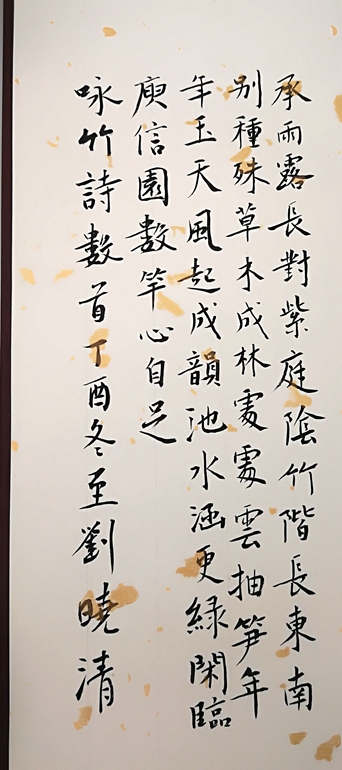 承雨露長對紫庭陰竹階長東南
别種殊草木成林處處雲抽笋年
年玉天風起成韻池水涵更綠閑臨
庾信園數竿心自足
咏竹詩數首丁酉冬至劉曉清